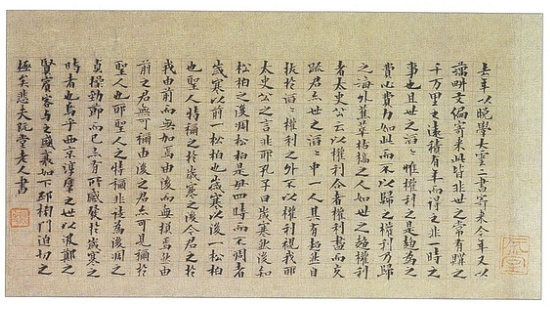 去年以晚學大雲二書寄來今年又以
藕耕文編寄來此皆非世之常有購之
千万里之遠積有年而得之非一時之
事也且世之滔滔惟權利之是趨爲之
費心費力如此而不以歸之權利乃歸
之海外蕉萃枯槁之人如世之趨權利
者太史公云以權利合者權利盡而交
踈君亦世之滔滔中一人其有超然自
拔於滔滔權利之外不以權利視我耶
太史公之言非耶孔子曰歲寒然後知
松柏之後凋松柏是毋四時而不凋者
歲寒以前一松柏也歲寒以後一松柏
也聖人特稱之於歲寒之後今君之於
我由前而無加焉由後而無損焉然由
前之君無可稱由後之君亦可見稱於
聖人也耶聖人之特稱非徒爲後凋之
貞操勁節而已亦有所感發於歲寒之
時者也烏乎西京淳厚之世以汲鄭之
賢賓客與之盛衰如下邳榜門迫切之
極矣悲夫阮堂老人書